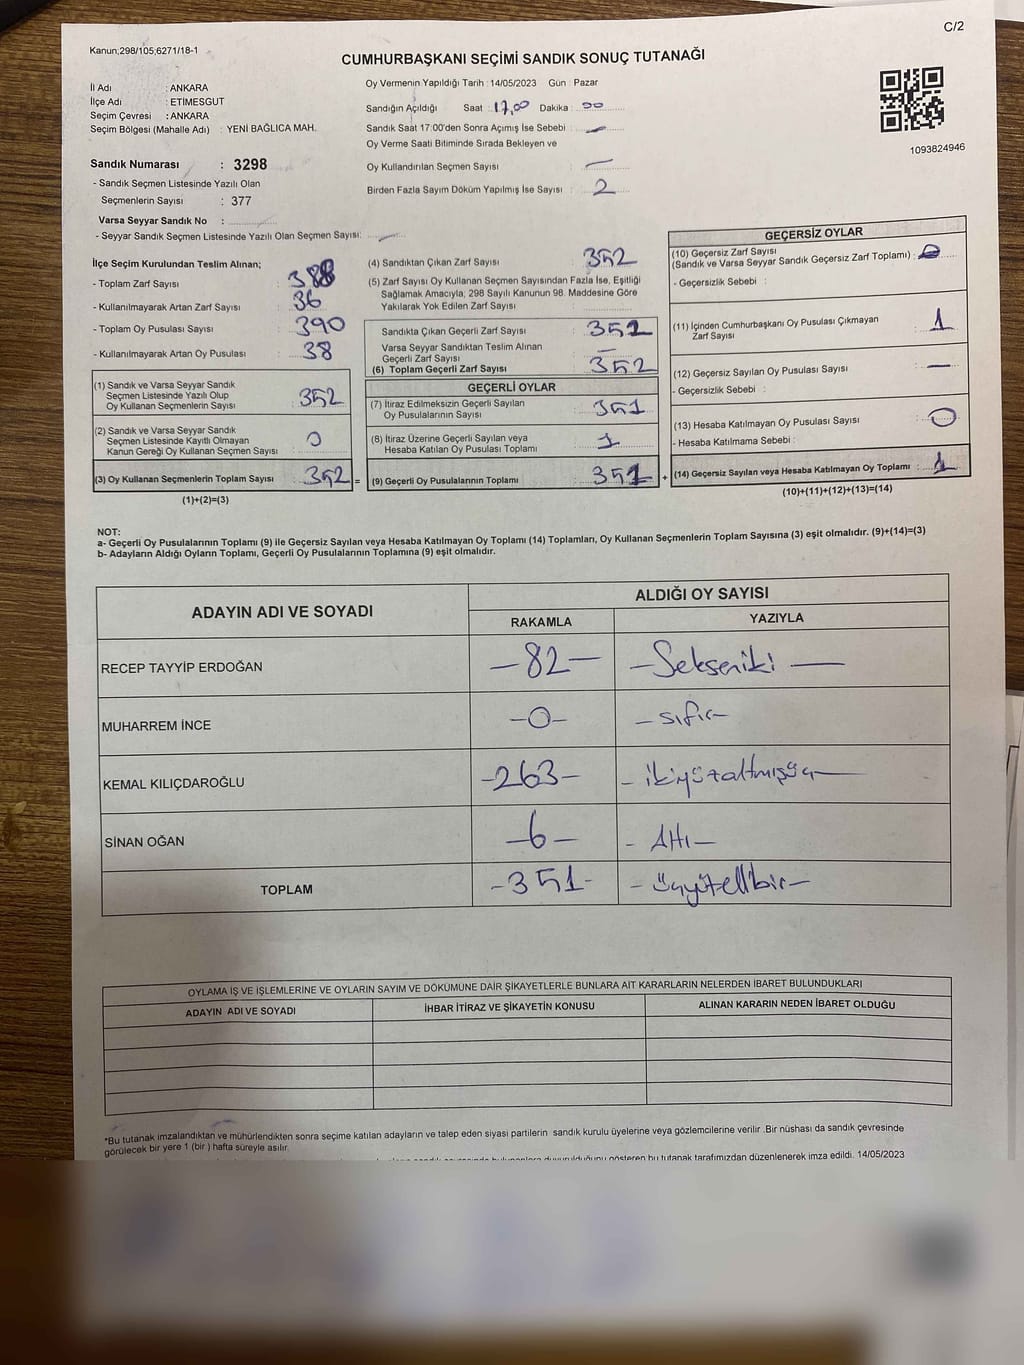 C/2
Kanun;298/105;6271/18-1
CUMHURBAŞKANI SEÇİMİ SANDIK SONUÇ TUTANAĞI
İl Adı : ANKARA
İlçe Adı : ETİMESGUT
Seçim Çevresi : ANKARA
Seçim Bölgesi (Mahalle Adı) : YENİ BAĞLICA MAH.
Sandık Numarası : 3298
- Sandık Seçmen Listesinde Yazılı Olan
Seçmenlerin Sayısı : 377
Varsa Seyyar Sandık No :
- Seyyar Sandık Seçmen Listesinde Yazılı Olan Seçmen Sayısı: —
Oy Vermenin Yapıldığı Tarih : 14/05/2023 Gün : Pazar
Sandığın Açıldığı Saat : 17,00 Dakika : 00
Sandık Saat 17:00'den Sonra Açımış İse Sebebi : —
Oy Verme Saati Bitiminde Sırada Bekleyen ve
Oy Kullandırılan Seçmen Sayısı : —
Birden Fazla Sayım Döküm Yapılmış İse Sayısı : 2
1093824946
İlçe Seçim Kurulundan Teslim Alınan;
- Toplam Zarf Sayısı : 388
- Kullanılmayarak Artan Zarf Sayısı : 36
- Toplam Oy Pusulası Sayısı : 390
- Kullanılmayarak Artan Oy Pusulası : 38
(1) Sandık ve Varsa Seyyar Sandık
Seçmen Listesinde Yazılı Olup
Oy Kullanan Seçmenlerin Sayısı : 352
(2) Sandık ve Varsa Seyyar Sandık
Seçmen Listesinde Kayıtlı Olmayan
Kanun Gereği Oy Kullanan Seçmen Sayısı : 0
(3) Oy Kullanan Seçmenlerin Toplam Sayısı : 352 =
(1)+(2)=(3)
(4) Sandıktan Çıkan Zarf Sayısı : 352
(5) Zarf Sayısı Oy Kullanan Seçmen Sayısından Fazla İse, Eşitliği
Sağlamak Amacıyla, 298 Sayılı Kanunun 98. Maddesine Göre
Yakılarak Yok Edilen Zarf Sayısı :
Sandıkta Çıkan Geçerli Zarf Sayısı : 352
Varsa Seyyar Sandıktan Teslim Alınan
Geçerli Zarf Sayısı : —
(6) Toplam Geçerli Zarf Sayısı : 352
GEÇERLİ OYLAR
(7) İtiraz Edilmeksizin Geçerli Sayılan
Oy Pusulalarının Sayısı : 351
(8) İtiraz Üzerine Geçerli Sayılan veya
Hesaba Katılan Oy Pusulası Toplamı : 1
(9) Geçerli Oy Pusulalarının Toplamı : 351 +
GEÇERSİZ OYLAR
(10) Geçersiz Zarf Sayısı
(Sandık ve Varsa Seyyar Sandık Geçersiz Zarf Toplamı) :
- Geçersizlik Sebebi :
(11) İçinden Cumhurbaşkanı Oy Pusulası Çıkmayan
Zarf Sayısı : 1
(12) Geçersiz Sayılan Oy Pusulası Sayısı : —
- Geçersizlik Sebebi :
(13) Hesaba Katılmayan Oy Pusulası Sayısı : 0
- Hesaba Katılmama Sebebi :
(14) Geçersiz Sayılan veya Hesaba Katılmayan Oy Toplamı : 1
(10)+(11)+(12)+(13)=(14)
NOT:
a- Geçerli Oy Pusulalarının Toplamı (9) ile Geçersiz Sayılan veya Hesaba Katılmayan Oy Toplamı (14) Toplamları, Oy Kullanan Seçmenlerin Toplam Sayısına (3) eşit olmalıdır. (9)+(14)=(3)
b- Adayların Aldığı Oyların Toplamı, Geçerli Oy Pusulalarının Toplamına (9) eşit olmalıdır.
ADAYIN ADI VE SOYADI ALDIĞI OY SAYISI
RAKAMLA YAZIYLA
RECEP TAYYİP ERDOĞAN -82- -Sekseniki-
MUHARREM İNCE -0- -sıfır-
KEMAL KILIÇDAROĞLU -263- -ikiyüzaltmışüç-
SİNAN OĞAN -6- -Altı-
TOPLAM -351- -üçyüzellibir-
OYLAMA İŞ VE İŞLEMLERİNE VE OYLARIN SAYIM VE DÖKÜMÜNE DAİR ŞİKAYETLERLE BUNLARA AİT KARARLARIN NELERDEN İBARET BULUNDUKLARI
ADAYIN ADI VE SOYADI İHBAR İTİRAZ VE ŞİKAYETİN KONUSU ALINAN KARARIN NEDEN İBARET OLDUĞU
*Bu tutanak imzalandıktan ve mühürlendikten sonra seçime katılan adayların ve talep eden siyasi partilerin sandık kurulu üyelerine veya gözlemcilerine verilir .Bir nüshası da sandık çevresinde
görülecek bir yere 1 (bir ) hafta süreyle asılır.
bu tutanak tarafımızdan düzenlenerek imza edildi. 14/05/2023